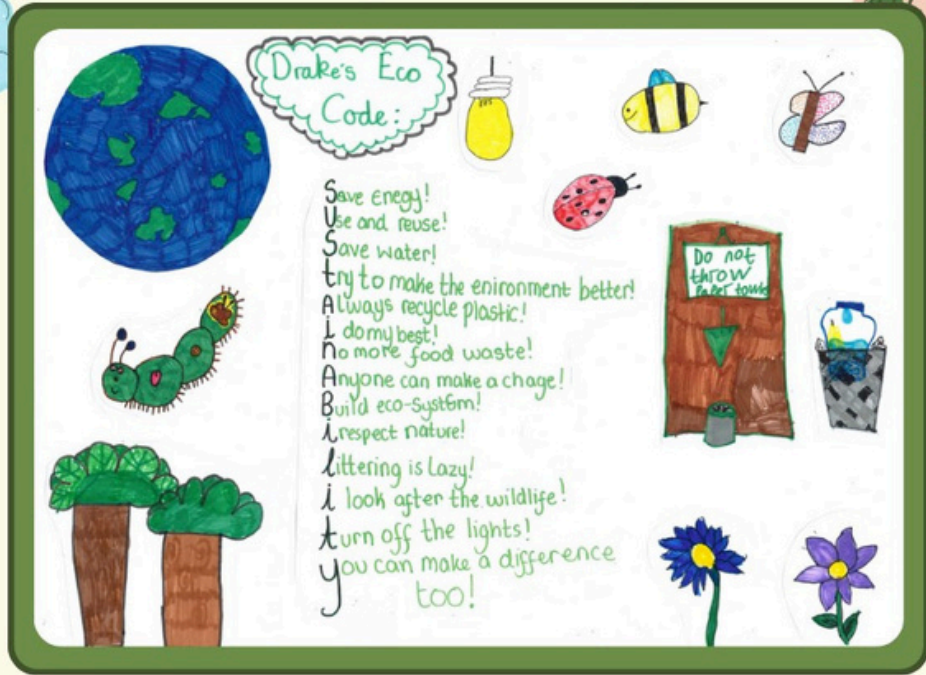 Drake's Eco
Code:
Save Enegy!
Use and reuse!
Save water!
try to make the enironment better!
Always recycle plastic!
i do my best!
no more food waste!
Anyone can make a chage!
Build eco-system!
i respect nature!
littering is Lazy!
i look after the wildlife!
turn off the lights!
you can make a difference
too!
Do not
throw
paper towels